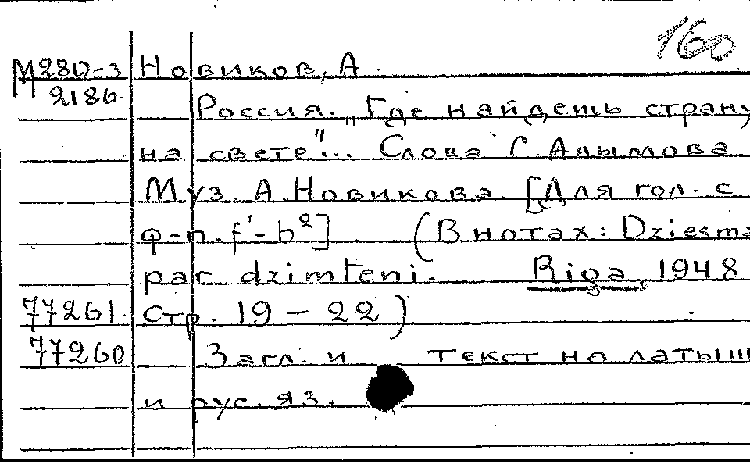 160
М280-3 Новиков, А.
2186
Россия. „Где найдешь страну
на свете"... Слова С. Алымова
Муз. А. Новикова. [Для гол. с
ф-п. f'-b²] (В нотах: Dziesma
par dzimteni. Riga, 1948
77261. Стр. 19 – 22)
77260 Загл. и текст на латыш
и рус. яз.